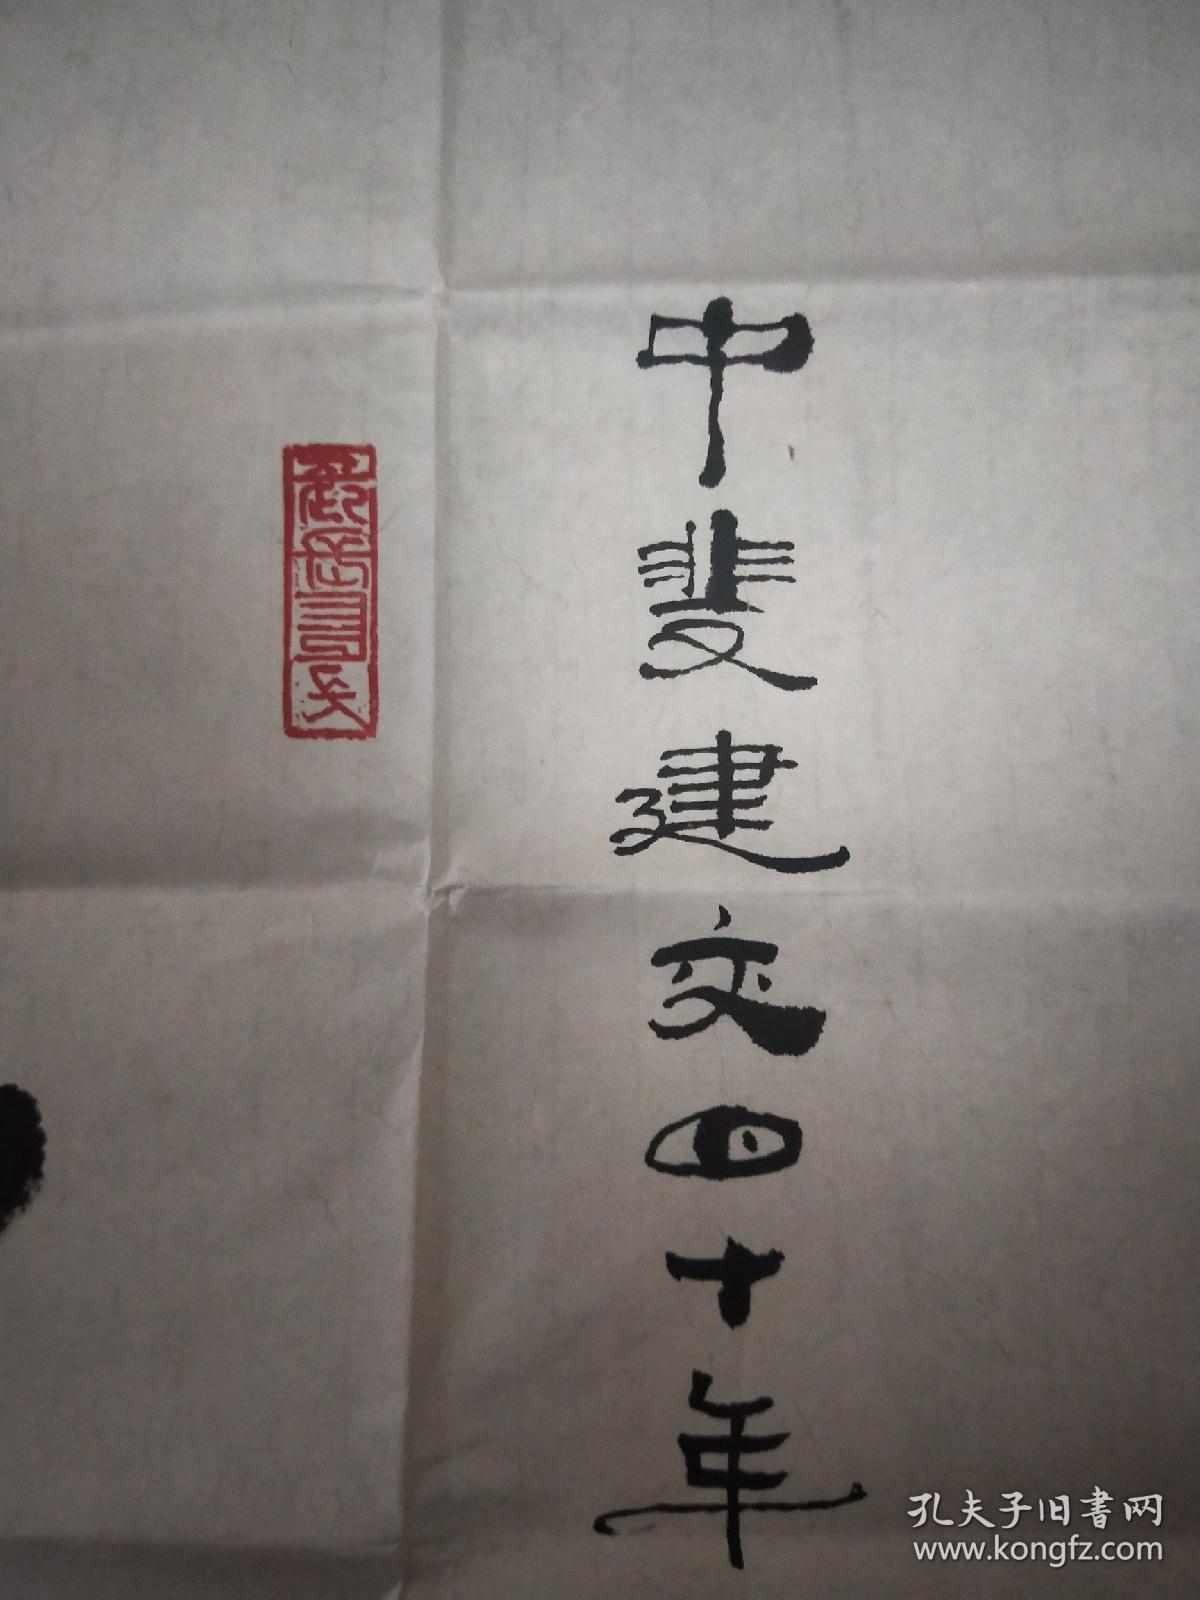 中斐建交四十年
孔夫子旧書网
www.kongfz.com